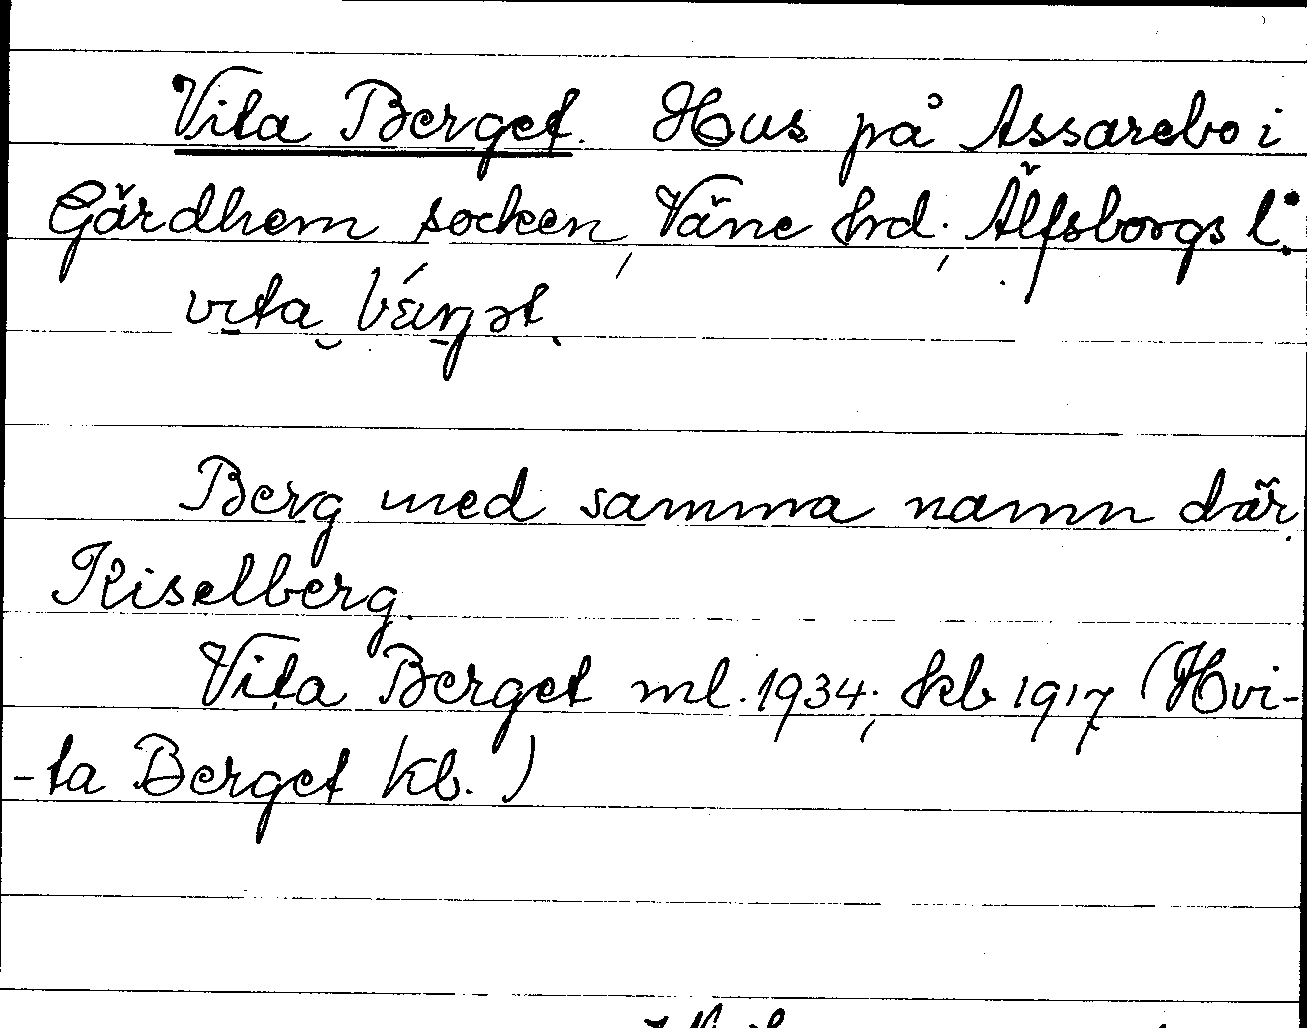 Vita Berget. Hus på Assarebo i
Gärdhem socken, Väne hrd; Älfsborgs l:
vita
Berg med samma namn där.
Kiselberg.
Vita Berget ml. 1934; kb 1917 (Hvi-
-ta Berget kb.)